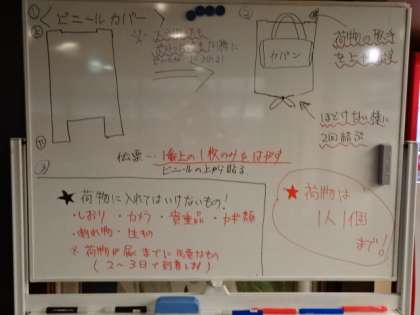 ① <ビニールカバー>
②
荷物の取手
カバン
ほどけない様に
2回結ぶ
③
伝票… 1番上の1枚のみをはがす
ビニールの上から貼る
★荷物に入れてはいけないもの!
・しおり ・カメラ ・貴重品 ・カギ類
・割れ物 ・生もの
※荷物が届くまでに必要なもの
(2〜3日で到着します)
★荷物は
1人1個
まで!